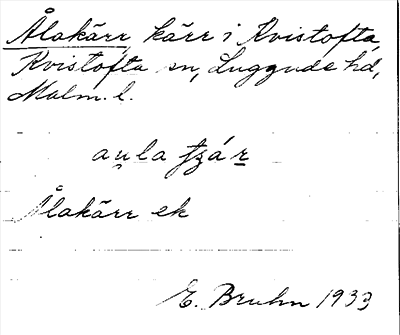 Ålakärr, kärr i Kvistofta,
Kvistofta sn, Luggude hd,
Malm. l.
aula fzár
Ålakärr ek
E. Bruhn 1933